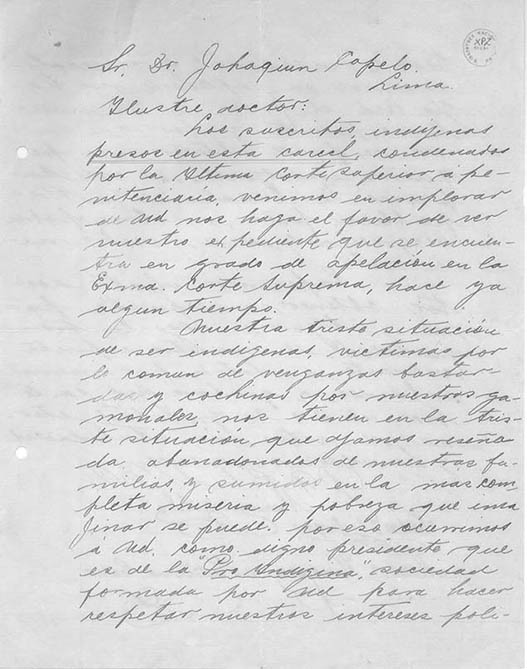 Sr. Dr. Johaquin Capelo.
Lima.
Ilustre doctor:
Los suscritos, indígenas
presos en esta carcel, condenados
por la Ultima Corte Superior á pe-
nitenciaría, venimos en implorar
de Ud nos haga el favor de ver
nuestro expediente que se encuen-
tra en grado de apelación en la
Exma. Corte Suprema, hace ya
algun tiempo.
Nuestra triste situación
de ser indigenas, victimas por
lo comun de venganzas bastar-
das y cochinas por nuestros ga-
monales, nos tienen en la tris-
te situacion que dejamos reseña
da, abandonados de nuestras fa-
milias, y sumidos en la mas com
pleta miseria y pobreza que ima
jinar se puede, por eso ocurrimos
á Ud. como digno presidente que
es de la "Pro Indígina", sociedad
formada por Ud para hacer
respetar nuestros intereses poli-